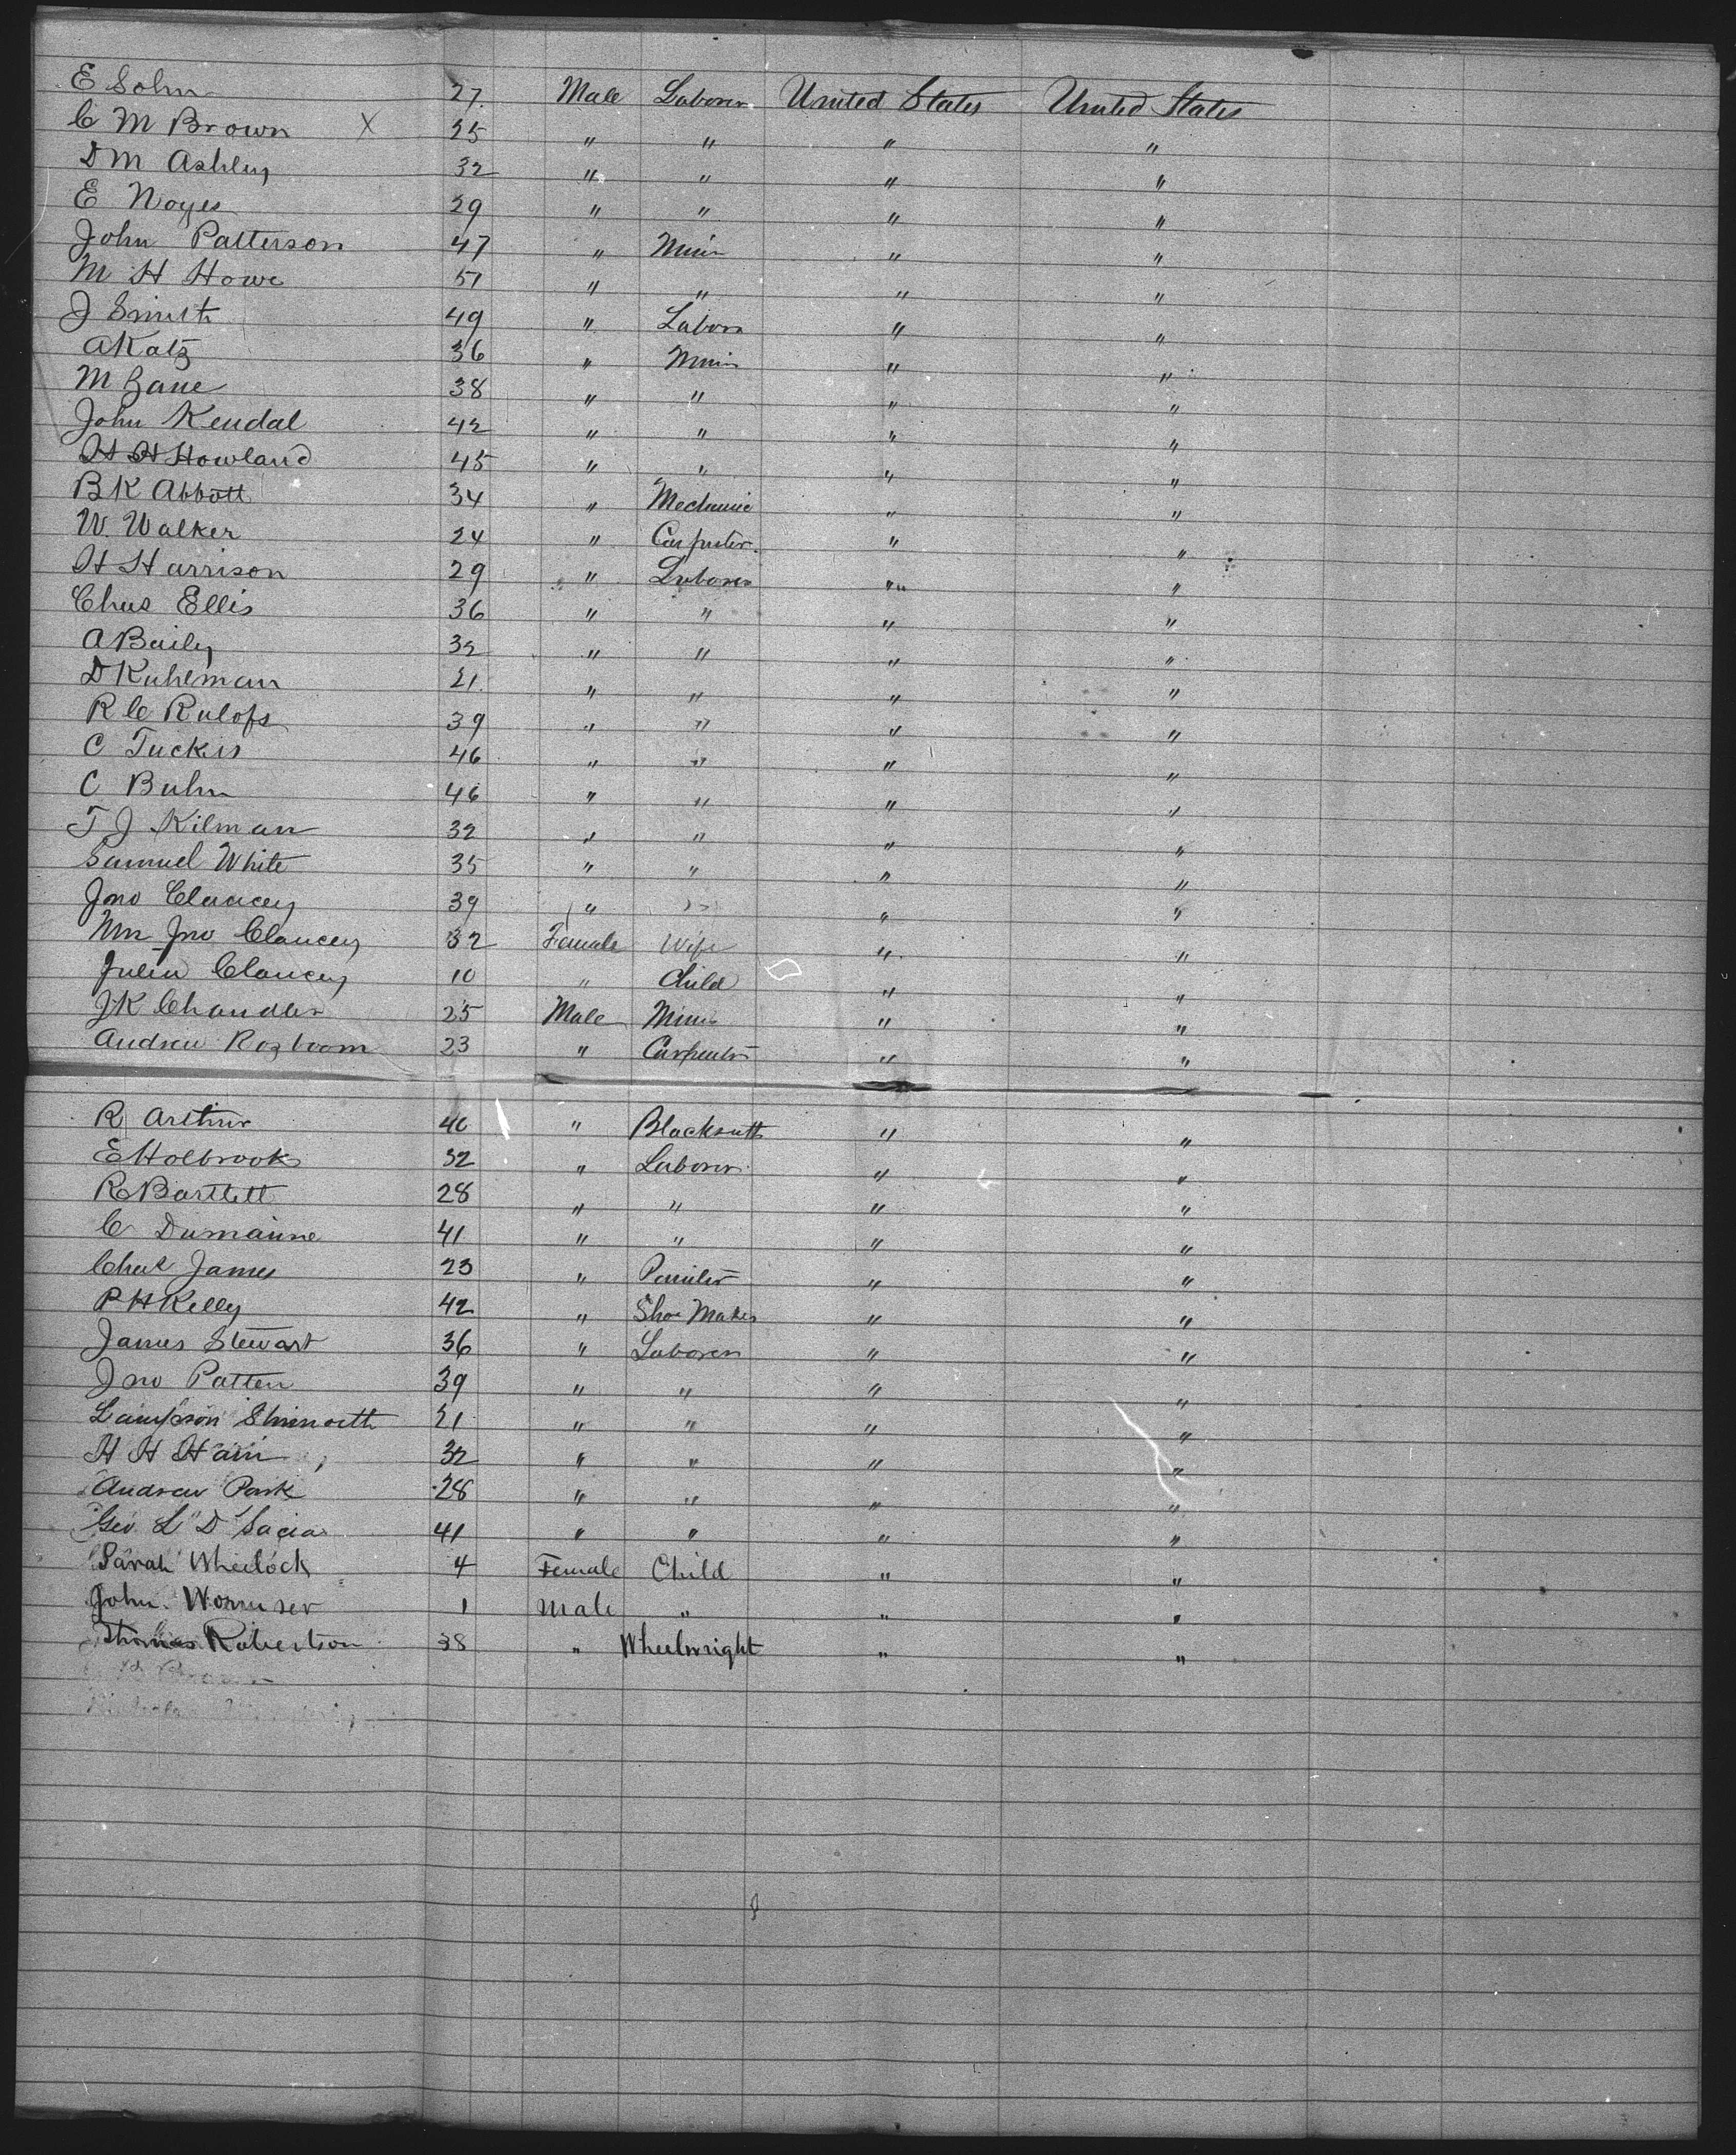 E Sohn 27. Male Laborer United States United States
C M Brown X 25 " " " "
D M Ashley 32 " " " "
E Noyes 29 " " " "
John Patterson 47 " Miner " "
M H Howe 51 " " " "
J Smith 49 " Labor " "
A Katz 36 " Miner " "
M Zane 38 " " " "
John Kendal 42 " " " "
H H Howland 45 " " " "
B K Abbott 34 " Mechanic " "
W. Walker 24 " Carpenter. " "
H Harrison 29 " Laborer " "
Chas Ellis 36 " " " "
A Baily 32 " " " "
D Kuhlman 21. " " " "
R C Rulofs 39 " " " "
C Tucker 46 " " " "
C Buhn 46 " " " "
T J Kilman 32 " " " "
Samuel White 35 " " " "
Jno Clancey 39 " " " "
Mrs Jno Clancey 32 Female Wife " "
Julia Clancey 10 " Child " "
J K Chandler 25 Male Miner " "
Andrew Rozboom 23 " Carpenter " "
R Arthur 40 " Blacksmith " "
E Holbrook 32 " Laborer " "
R Bartlett 28 " " " "
C Dumaine 41 " " " "
Chas James 23 " Painter " "
P H Kelly 42 " Shoe Maker " "
James Stewart 36 " Laborer " "
Jno Patten 39 " " " "
Lampson 21 " " " "
H H Hain 32 " " " "
Andrew Park 28 " " " "
Geo L D Sacia 41 " " " "
Sarah Wheelock 4 Female Child " "
John Wormser 1 Male " " "
Thomas Robertson 38 " Wheelwright " "